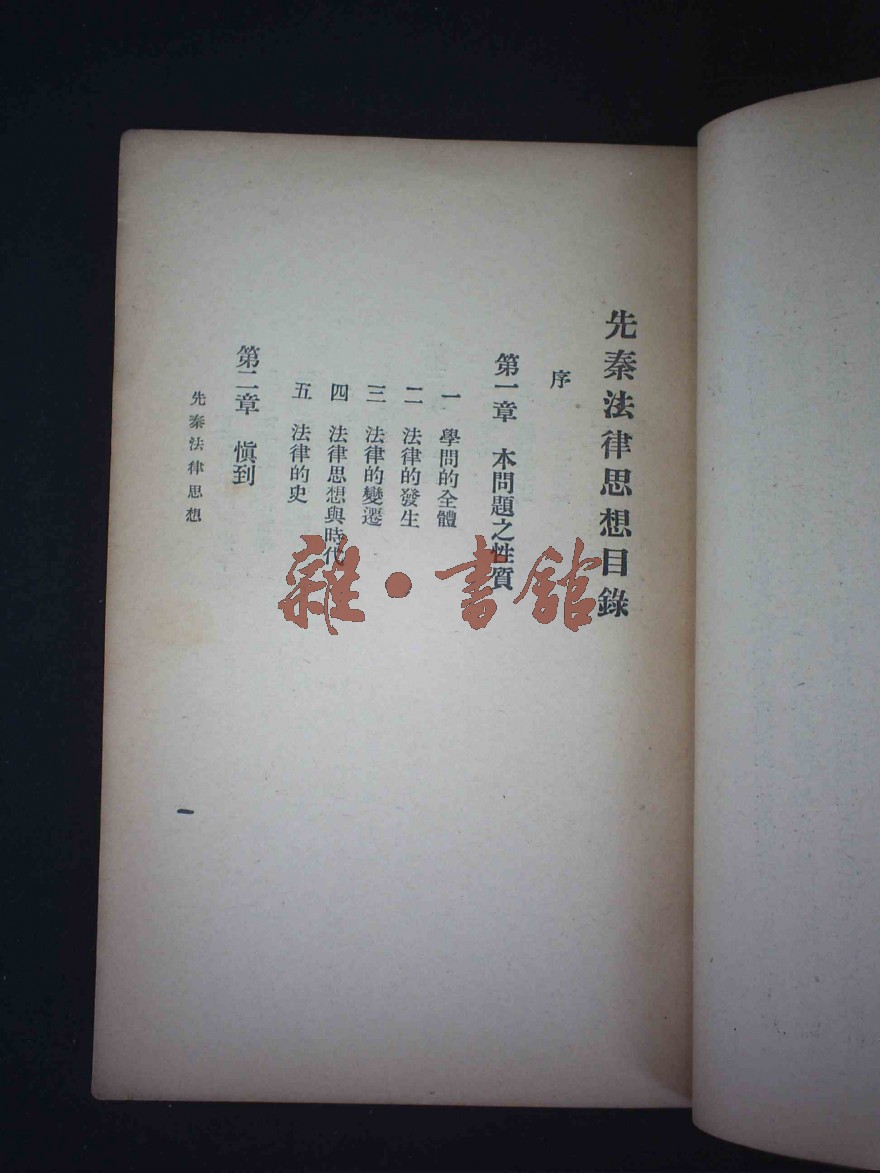 先秦法律思想目錄
序
第一章 本問題之性質
一 學問的全體
二 法律的發生
三 法律的變遷
四 法律思想與時代
五 法律的史
第二章 愼到
先秦法律思想
一
雜·書館